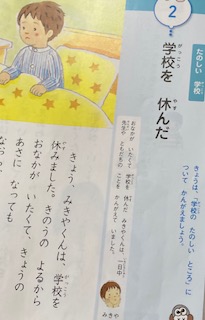 たのしい 学校
きょうは、「学校の たのしい ところ」に
ついて かんがえましょう。
2
がっこう やす
学校を 休んだ
おなかが いたくて 学校を 休んだ みきやくんは、一日中、
先生や ともだちの ことを かんがえて いました。
みきや
きょう、みきやくんは、学校を
休みました。きのうの よるから
おなかが いたくて、きょうの
あさに なっても